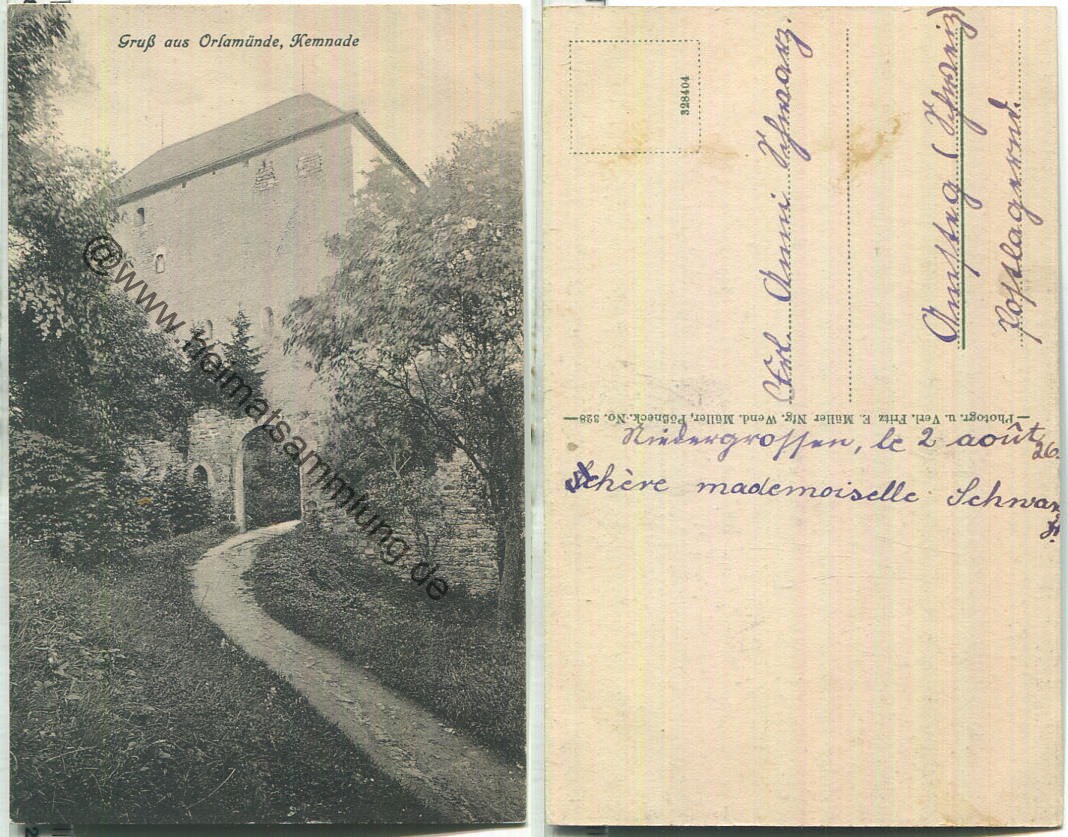 Gruß aus Orlamünde, Kemnade
@www.heimatsammlung.de
328404
Frl. Anni Schwarz.
Amsteg (Schweiz)
Postlagernd.
Photogr. u. Verl. Fritz E. Müller Nfg. Wend. Müller, Pößneck. No. 328
Niedergrossen, le 2 août
26.
chère mademoiselle Schwarz